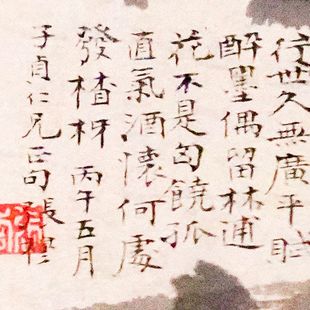 世久無廣平賦
醉墨偶留林逋
花不是匈饒孤
直氣酒懷何處
發楂枒 丙午五月
子貞仁兄正句 張穆